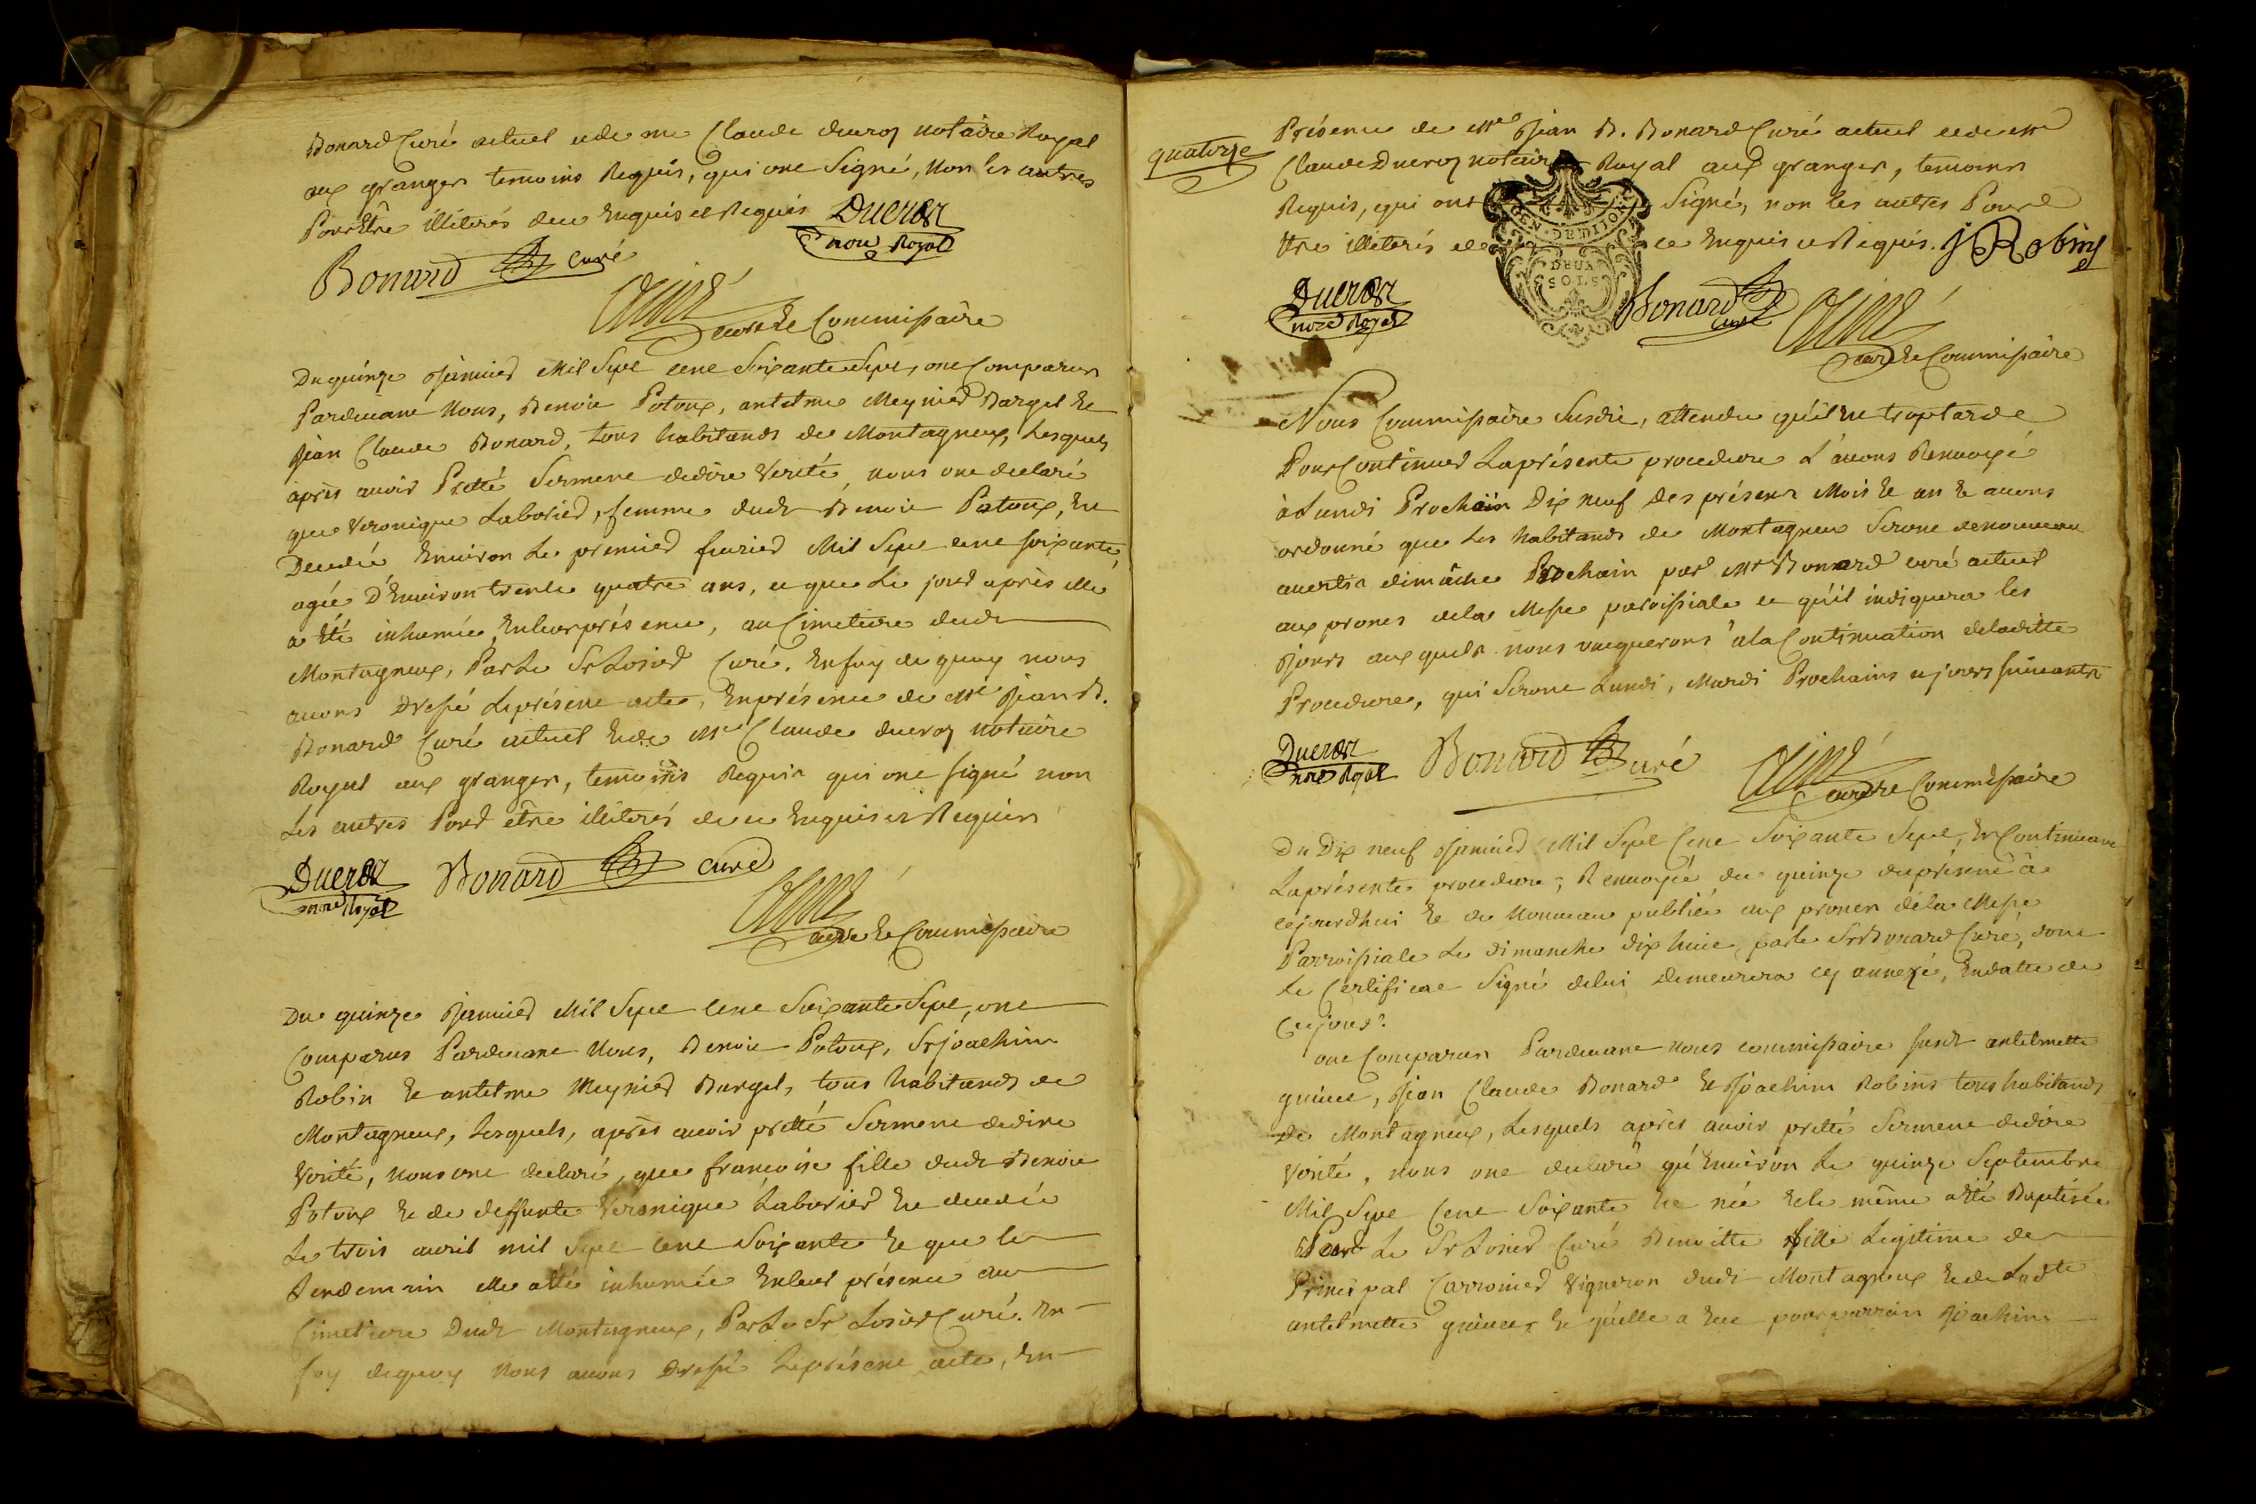 Bonard Curé actuel et de me Claude ducroz notaire Royal
aux granges temoins Requis, qui ont Signé, non les autres
Pour Être illiterés de ce Enquis et Requis Ducroz
nore Royal
Bonard curé
curé et Commissaire
Du quinze Janvier Mil Sept cent Soixante Sept, ont Comparus
Pardevant Nous, Benoit Potoux, antelme Meynier Bargel Et
Jean Claude Bonard, tous habitands de Montagneux, Lesquels
après avoir Pretté Serment de dire Verité, nous ont declaré
que Veronique Laborier, femme dudt Benoit Potoux, Est
Decedée Environ Le premier fevrier Mil Sept cent soixante,
agée D'Environ trente quatre ans, et que Le jour après elle
a Eté inhumée En leur présence, au Cimetiere dudt
Montagneux, Par Le Sr Losier Curé. En foy de quoy nous
avons Dressé Le présent acte, En présence de Mre Jean B.
Bonard Curé actuel Et de Me Claude ducroz notaire
Royal aux granges, temoins Requis qui ont signé non
Les autres Pour être illiterés de ce Enquis et Requis
Ducroz
nore Royal
Bonard curé
curé et Commissaire
Du quinze Janvier Mil Sept cent Soixante Sept, ont
Comparus Pardevant Nous, Benoit Potoux, Sr joachim
Robin Et antelme Meynier Bargel, tous habitands de
Montagneux, Lesquels, après avoir pretté Serment de dire
Verité, nous ont declaré, que francoise fille dudt Benoit
Potoux Et de deffunte Veronique Laborier Est decedée
Le trois avril mil Sept cent Soixante Et que le
Lendemain elle a été inhumée En leur présence au
Cimetiere Dudt Montagneux, Par Le Sr Losier Curé. En
foy de quoy Nous avons Dressé Le présent acte, En
quatorze
Présence de Mre Jean B. Bonard Curé actuel et de Me
Claude Ducroz notaire Royal aux granges, temoins
Requis, qui ont Signé, non les autres Pour
Etre illiterés de ce Enquis et Requis. J Robin
GEN. DE DIJON
DEUX
SOLS
Ducroz
nore Royal
Bonard
curé
curé Et Commissaire
Nous Commissaire Susdit, attendu qu'il Est trop tard
Pour Continuer La présente procedure L'avons Renvoyé
à Lundi Prochain Dix neuf des présens Mois Et an Et avons
ordonné que Les habitands de Montagneux Seront de nouveau
avertis dimâche Prochain par Mre Bonard curé actuel
aux prones de la Messe paroissiale et qu'il indiquera les
Jours aux quels nous vacquerons a la Continuation de laditte
Procedure, qui Seront Lundi, Mardi Prochains et jours suivants
Ducroz
nore Royal
Bonard curé
curé Et Commissaire
Du Dix neuf Janvier Mil Sept Cent Soixante Sept, En Continuant
La présente procedure, Renvoyée du quinze du présent à
cejourdhui Et de Nouveau publiée aux prones de la Messe
Parroissiale Le dimanche dix huit, par le Sr Bonard Curé, dont
Le Certificat Signé de lui Demeurera cy annexé, En datte de
Ce jour.
ont Comparus Pardevant nous commissaire susdt antelmette
quinet, Jean Claude Bonard Et Joachim Robins tous habitands
De Montagneux, Lesquels après avoir pretté Serment de dire
Verité, nous ont declaré qu'Environ Le quinze Septembre
Mil Sept Cent Soixante Est née Et le même a Eté Baptisée
Par Le Sr Losier Curé Benoitte fille Legitime de
Principal Carronier Vigneron dudt Montagneux Et de Ladte
antelmette quinet, Et qu'elle a Eue pour parrain Joachim